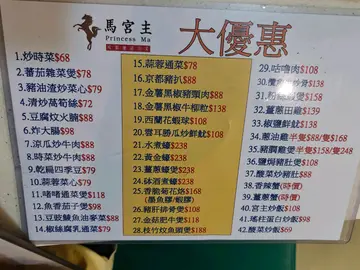 馬宮主
Princess Ma
大優惠
1.炒時菜$68
2.蕃茄雜菜煲$78
3.豬油渣炒菜心$79
4.清炒萵筍絲$72
5.豆腐炆火腩$88
6.炸大腸$98
7.涼瓜炒牛肉$88
8.時菜炒牛肉$88
9.乾扁四季豆$79
10.蒜蓉菜心$79
11.啫啫通菜煲$118
12.魚香茄子煲$98
13.豆豉鯪魚油麥菜$88
14.椒絲腐乳通菜$79
15.蒜蓉通菜$78
16.京都豬扒$88
17.金薯黑椒豬頸肉$88
18.金薯黑椒牛柳粒$138
19.西蘭花蝦球$108
20.雲耳勝瓜炒鮮魷$108
21.水煮蠔$238
22.黃金蠔$238
23.薑蔥蠔煲$238
24.砵酒煮蠔$238
25.香脆菊花烚$168
(墨魚膠/蝦膠)
26.豬肝排骨煲$108
27.金菇肥牛煲$118
28.枝竹炆魚頭煲$188
29.咕嚕肉$108
$138
$158
32.薑蔥田雞$139
33.椒鹽鮮魷$108
34.蔥油雞半隻$88/隻$168
35.豬膶雞煲半隻$158/隻$248
36.鹽焗豬肚煲$108
37.酸菜炒豬肚$108
38.香辣蟹(時價)
39.薑蔥蟹(時價)
40.宮主炒飯$108
41.瑤柱蛋白炒飯$98
42.酸菜炒飯$68